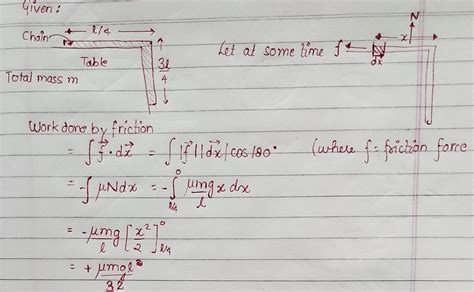 Given:
l/4
Chain
Table
3l/4
Total mass m
Let at some time f
x
N
dx
Work done by friction
= ∫ f⃗·dx⃗ = ∫ |f⃗||dx⃗| cos180° (where f = friction force
= -∫ μNdx = -∫_{l/4}^{0} μmg/l x dx
= -μmg/l [x²/2]_{l/4}^{0}
= + μmgl/32